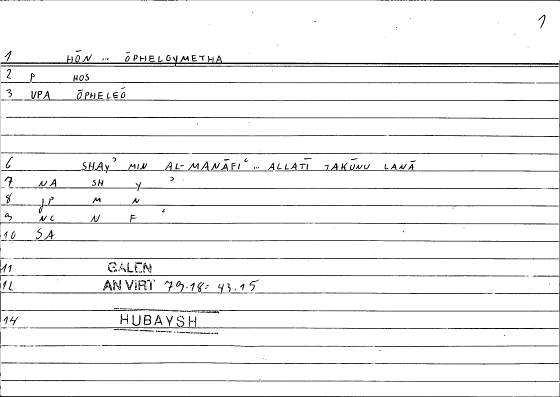 1
1 HŌN ... ŌPHELOYMETHA
2 P HOS
3 VPA ŌPHELEŌ
6 SHAYʾ MIN AL-MANĀFIʿ ... ALLATĪ TAKŪNU LANĀ
7 NA SH Y ʾ
8 JP M N
9 NC N F ʿ
10 SA
11 GALEN
12 AN VIRT 79.18 = 43.15
14 HUBAYSH